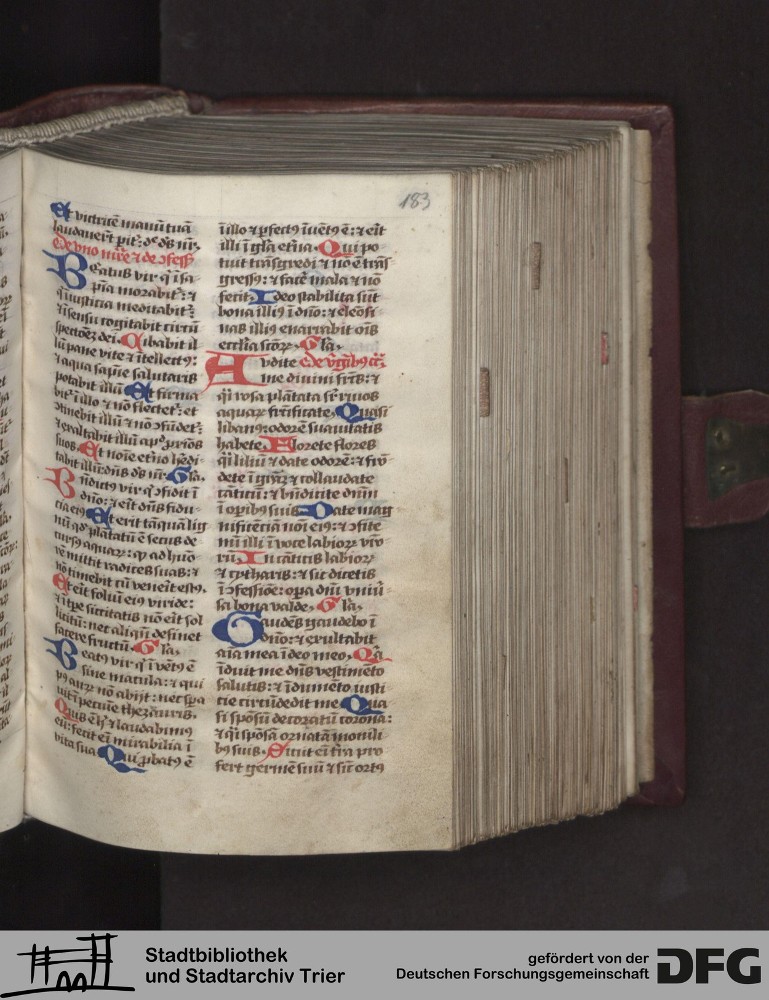 183
Et victricē manū tuā
laudaverūt pit̄: dē dn̄s nr̄.
De vno mr̄e ⁊ de ɔfess̄
Beatus vir q̄ ī sa
pn̄a morabit̄: ⁊
q̄ iusticia meditabit̄:
⁊ ī sensu cogitabit circū
spectōez dei. Cibabit il
lū pane vite ⁊ ītellect9:
⁊ aqua sapn̄e salutaris
potabit illū. Et firma
bit̄ ī illo ⁊ nō flectet̄: et
ɔtinebit illū ⁊ nō ɔfūdet̄:
⁊ exaltabit illū apd̄ ꝓxīos
suos. Et noīe et̄no hēdi
tabit illū dn̄s ds̄ nr̄. Gla.
Bn̄dict9 vir q̄ ɔfidit ī
dn̄o: ⁊ eit dn̄s fidu
cia ei9. Et erit tāquā lig
nū qd̄ plātatū ē secus de
curs9 aquaꝝ: qd̄ ad huō
rē mittit radices suas: ⁊
nō timebit cū venēit est9.
Et eit foliū ei9 viride:
⁊ ī tp̄e siccitatis nō eit sol
licitū: nec aliqn̄ desinet
facere fructū. Gla.
Beat9 vir q̄ īvēt9 ē
sine macula: ⁊ qui
p9 auꝝ nō abijt: nec spa
uit ī pecuīe thezauris.
Quis ē h̄ ⁊ laudabim9
eū: fecit eī mirabilia ī
vita sua. Qui ꝓbat9 ē
ī illo ⁊ ꝑfect9 īvēt9 ē: ⁊ eit
illi ī gl̄a et̄na. Qui po
tuit trāsgredi ⁊ nō ē trās
gress9: ⁊ facē mala ⁊ nō
fecit. Ideo stabilita sūt
bona illi9 ī dn̄o: ⁊ eleōsi
nas illi9 enarrabit oīs
eccl̄ia scōꝝ. Gla.
Audite De v̄gīb9 cā.
me divini fruc̄: ⁊
q̄i rosa plātata sr̄ rivos
aquaꝝ frūctificate. Quasi
liban9 odorē suavitatis
habete. Florete flores
q̄i liliū ⁊ date odorē: ⁊ frō
dete ī grāꝫ ⁊ collaudate
cāticū: ⁊ bn̄dicite dnm̄
ī opib9 suis. Date mag
nificēciā noī ei9: ⁊ ɔfite
mī illi ī voce labioꝝ vr̄o
rū. In cāticis labioꝝ
⁊ cytharis: ⁊ sic dicetis
ī ɔfessiōe: opa dn̄i vniū
sa bona valde. Gla.
Gaudēs gaudebo ī
dn̄o: ⁊ exultabit
aīa mea ī deo meo. Qa
īduit me dn̄s vestimēto
salutis: ⁊ īdumēto iusti
cie circūdedit me. Qua
si spōsū decoratū corona:
⁊ q̄i spōsā ornatā monili
b9 suis. Sicut eī t̄ra pro
fert germē suū ⁊ sic ort9
Stadtbibliothek
und Stadtarchiv Trier
gefördert von der
Deutschen Forschungsgemeinschaft
DFG